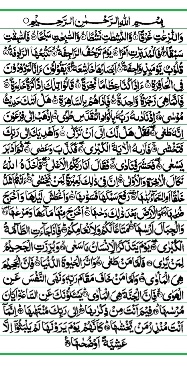 بسم الله الرحمن الرحيم
والنزعت غرقا والنشطت نشطا والسبحت سبحا فالسبقت
سبقا فالمدبرت أمرا يوم ترجف الراجفة تتبعها الرادفة
قلوب يومئذ واجفة أبصرها خشعة يقولون أءنا لمردودون
في الحافرة أءذا كنا عظما نخرة قالوا تلك إذا كرة خاسرة
فإنما هي زجرة وحدة فإذا هم بالساهرة هل أتىك حديث
موسى إذ نادىه ربه بالواد المقدس طوى اذهب إلى فرعون
إنه طغى فقل هل لك إلى أن تزكى وأهديك إلى ربك
فتخشى فأرىه الآية الكبرى فكذب وعصى ثم أدبر
يسعى فحشر فنادى فقال أنا ربكم الأعلى فأخذه الله
نكال الآخرة والأولى إن في ذلك لعبرة لمن يخشى ءأنتم أشد
خلقا أم السماء بنىها رفع سمكها فسوىها وأغطش ليلها وأخرج
ضحىها والأرض بعد ذلك دحىها أخرج منها ماءها ومرعىها
والجبال أرسىها متعا لكم ولأنعمكم فإذا جاءت الطامة
الكبرى يوم يتذكر الإنسن ما سعى وبرزت الجحيم
لمن يرى فأما من طغى وءاثر الحيوة الدنيا فإن الجحيم
هي المأوى وأما من خاف مقام ربه ونهى النفس عن
الهوى فإن الجنة هي المأوى يسئلونك عن الساعة أيان
مرسىها فيم أنت من ذكرىها إلى ربك منتهىها إنما
أنت منذر من يخشىها كأنهم يوم يرونها لم يلبثوا إلا
عشية أو ضحىها